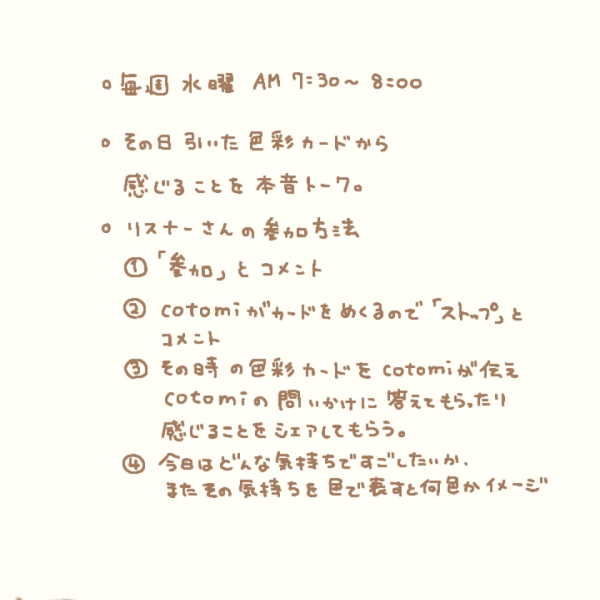 ○ 毎週 水曜 AM 7:30〜 8:00
○ その日 引いた 色彩 カードから
感じることを 本音トーク。
○ リスナーさんの 参加方法
① 「参加」と コメント
② cotomiがカードを めくるので「ストップ」と
コメント
③ その時 の 色彩 カードを cotomiが伝え
cotomiの 問いかけに 答えてもらったり
感じることを シェアしてもらう。
④ 今日はどんな気持ちですごしたいか、
またその 気持ちを 色で表すと何色かイメージ